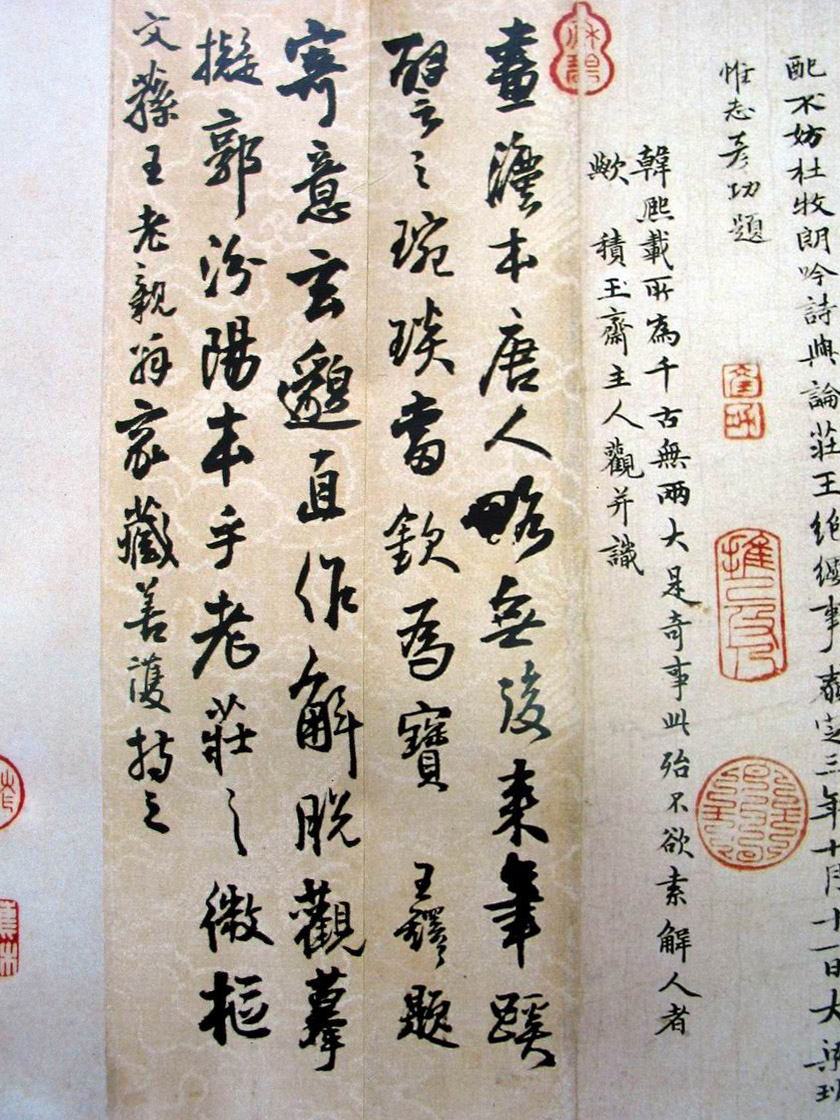 配不妨杜牧朗吟詩與論莊王絶纓事泰定三年十月十一日大梁班
惟志彦功題
韓熙載所為千古無兩大是奇事此殆不欲索解人者
歟 積玉齋主人觀并識
畫灋本唐人略無後来筆蹊
譬之琬琰當欽為寶 王鐸題
寄意玄邈直作解脱觀摹
擬郭汾陽本乎老莊之微枢
文蓀王老親翁家藏善護持之